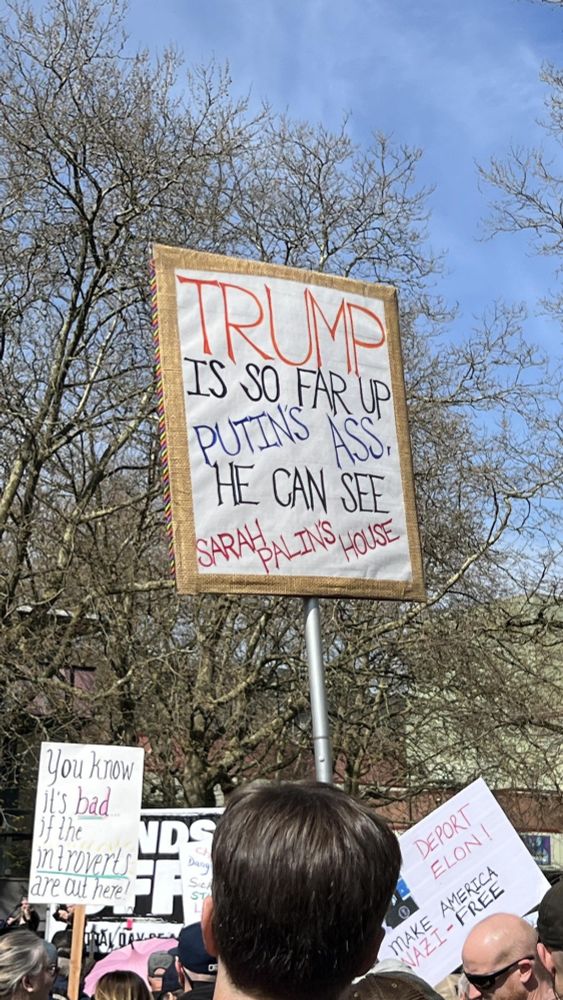 TRUMP
IS SO FAR UP
PUTIN'S ASS,
HE CAN SEE
SARAH PALIN'S HOUSE
You know
it's bad
if the
introverts
are out here!
DEPORT
ELON!
MAKE AMERICA
NAZI-FREE